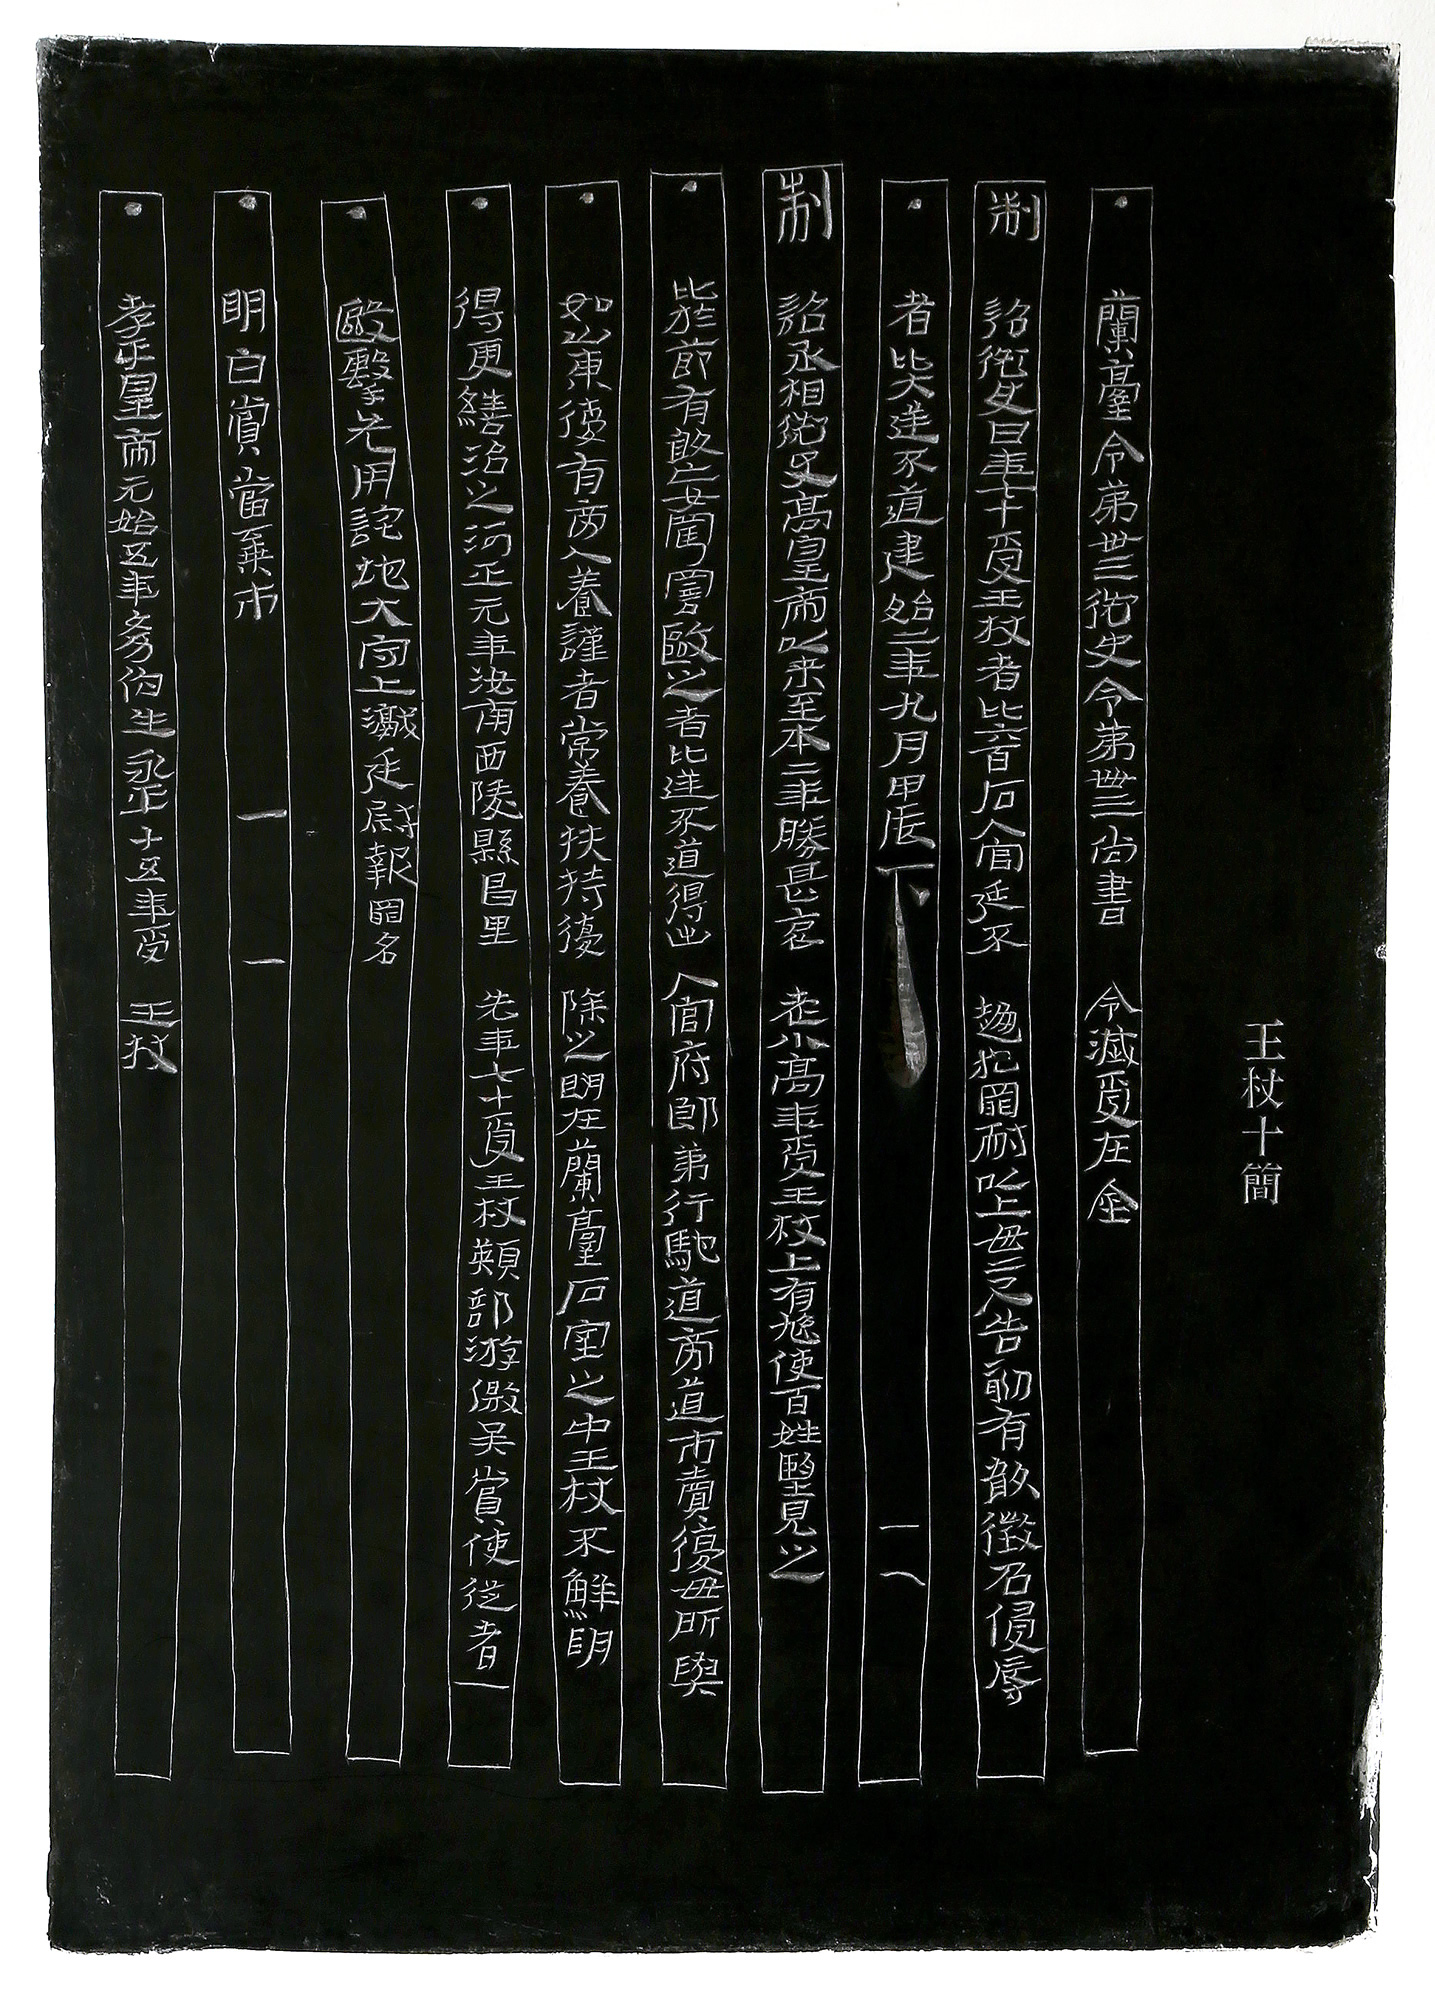 王杖十簡
蘭臺令第卅三御史令第卌三尚書令滅受在金
制詔御史曰年七十受王杖者比六百石入官廷不趨犯罪耐以上毋二尺告劾有敢徵召侵辱
者比大逆不道建始二年九月甲辰下
制詔丞相御史高皇帝以来至本二年勝甚哀老小高年受王杖上有鳩使百姓望見之
比於節有敢妄罵詈毆之者比逆不道得出入官府郎第行馳道旁道市賣復毋所與
如山東復有旁人養謹者常養扶持復除之明在蘭臺石室之中王杖不鮮明
得更繕治之河平元年汝南西陵縣昌里先年七十受王杖熲部游徼吴賞使從者
毆擊先用詫地大守上讞廷尉報罪名
明白賞當棄市
孝平皇帝元始五年幼伯生永平十五年受王杖